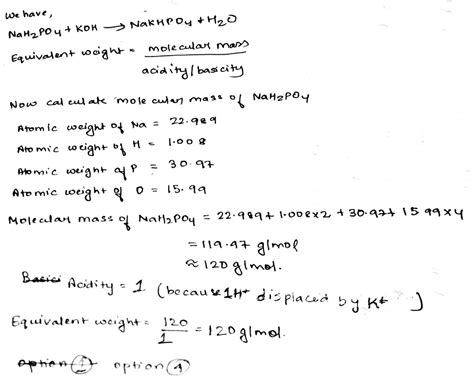 We have,
NaH2PO4 + KOH → NaKHPO4 + H2O
Equivalent weight = molecular mass
acidity/basicity
Now calculate molecular mass of NaH2PO4
Atomic weight of Na = 22.989
Atomic weight of H = 1.008
Atomic weight of P = 30.97
Atomic weight of O = 15.99
Molecular mass of NaH2PO4 = 22.989 + 1.008×2 + 30.97 + 15.99×4
= 119.97 g/mol
≈ 120 g/mol.
Basici Acidity = 1 (because 1H+ displaced by K+ )
Equivalent weight = 120
1 = 120 g/mol.
option 1 option 4